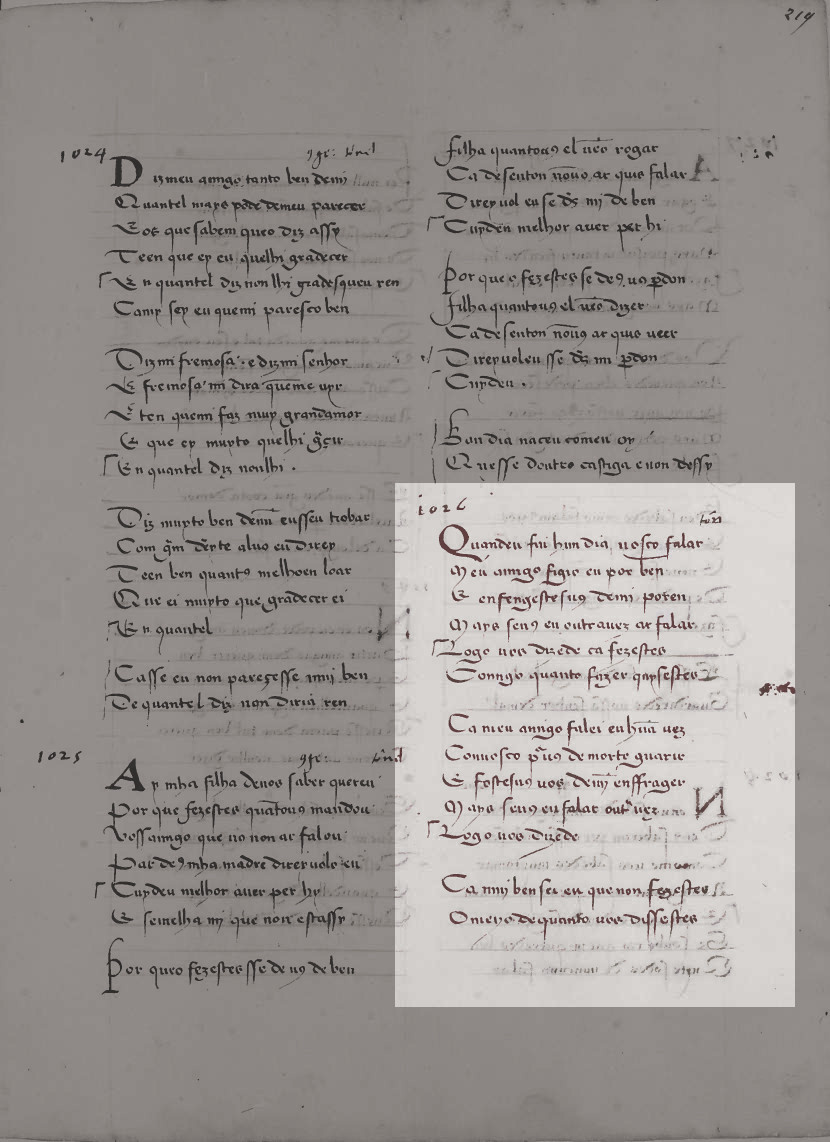 219
1024
Diz meu amigo tanto ben demi
Quantel mays pode demeu parecer
Eos que sabem queo diz assy
Teen que ey eu quelhi gradecer
En quantel diz non lhi gradesqueu ren
Camj sey eu quemi paresco ben
Dizmi fremosa e dizmi senhor
E fremosa mi dira queme uyr
E ten quemi faz muy grandamor
E que ey muyto quelhi
En quantel diz nonlhi .
Diz muyto ben
Teen ben melhoen loar
Que ei muyto que gradecer ei
En quantel
Casse eu non pareçesse ben
De quantel diz non diria ren
1025
Ay mha filha deuos saber quereu
Por que fezestes mandou
Vossamigo que uo non ar falou
Par mha madre direruolo eu
Cuydeu melhor auer per hy
E semelha mj que non estassy
Por queo fezestes
filha el rogar
Ca desenton ar quis falar
Direyuol eu se mj de ben
Cuydeu melhor auer per hi
Por que o fezestes se
filha el dizer
Ca desenton ar quis ueer
Cuydeu .
Bon dia naceu comeu oy
Quesse doutro castiga e non
1026
Quandeu fui hun dia uosco falar
Meu amigo figio eu por ben
E enfengestesuus demi poren
Mays seus eu outrauez ar falar
Logo uos dizede ca fezestes
Comigo quanto fazer quysestes
Ca meu amigo falei eu uez
Conuosco de morte guarir
E fostesuus uos enffrager
Mays seuus eu falar uez
Logo uos dizede
Ca muj ben sei eu que non fezestes
O meyo de quanto uos dissestes